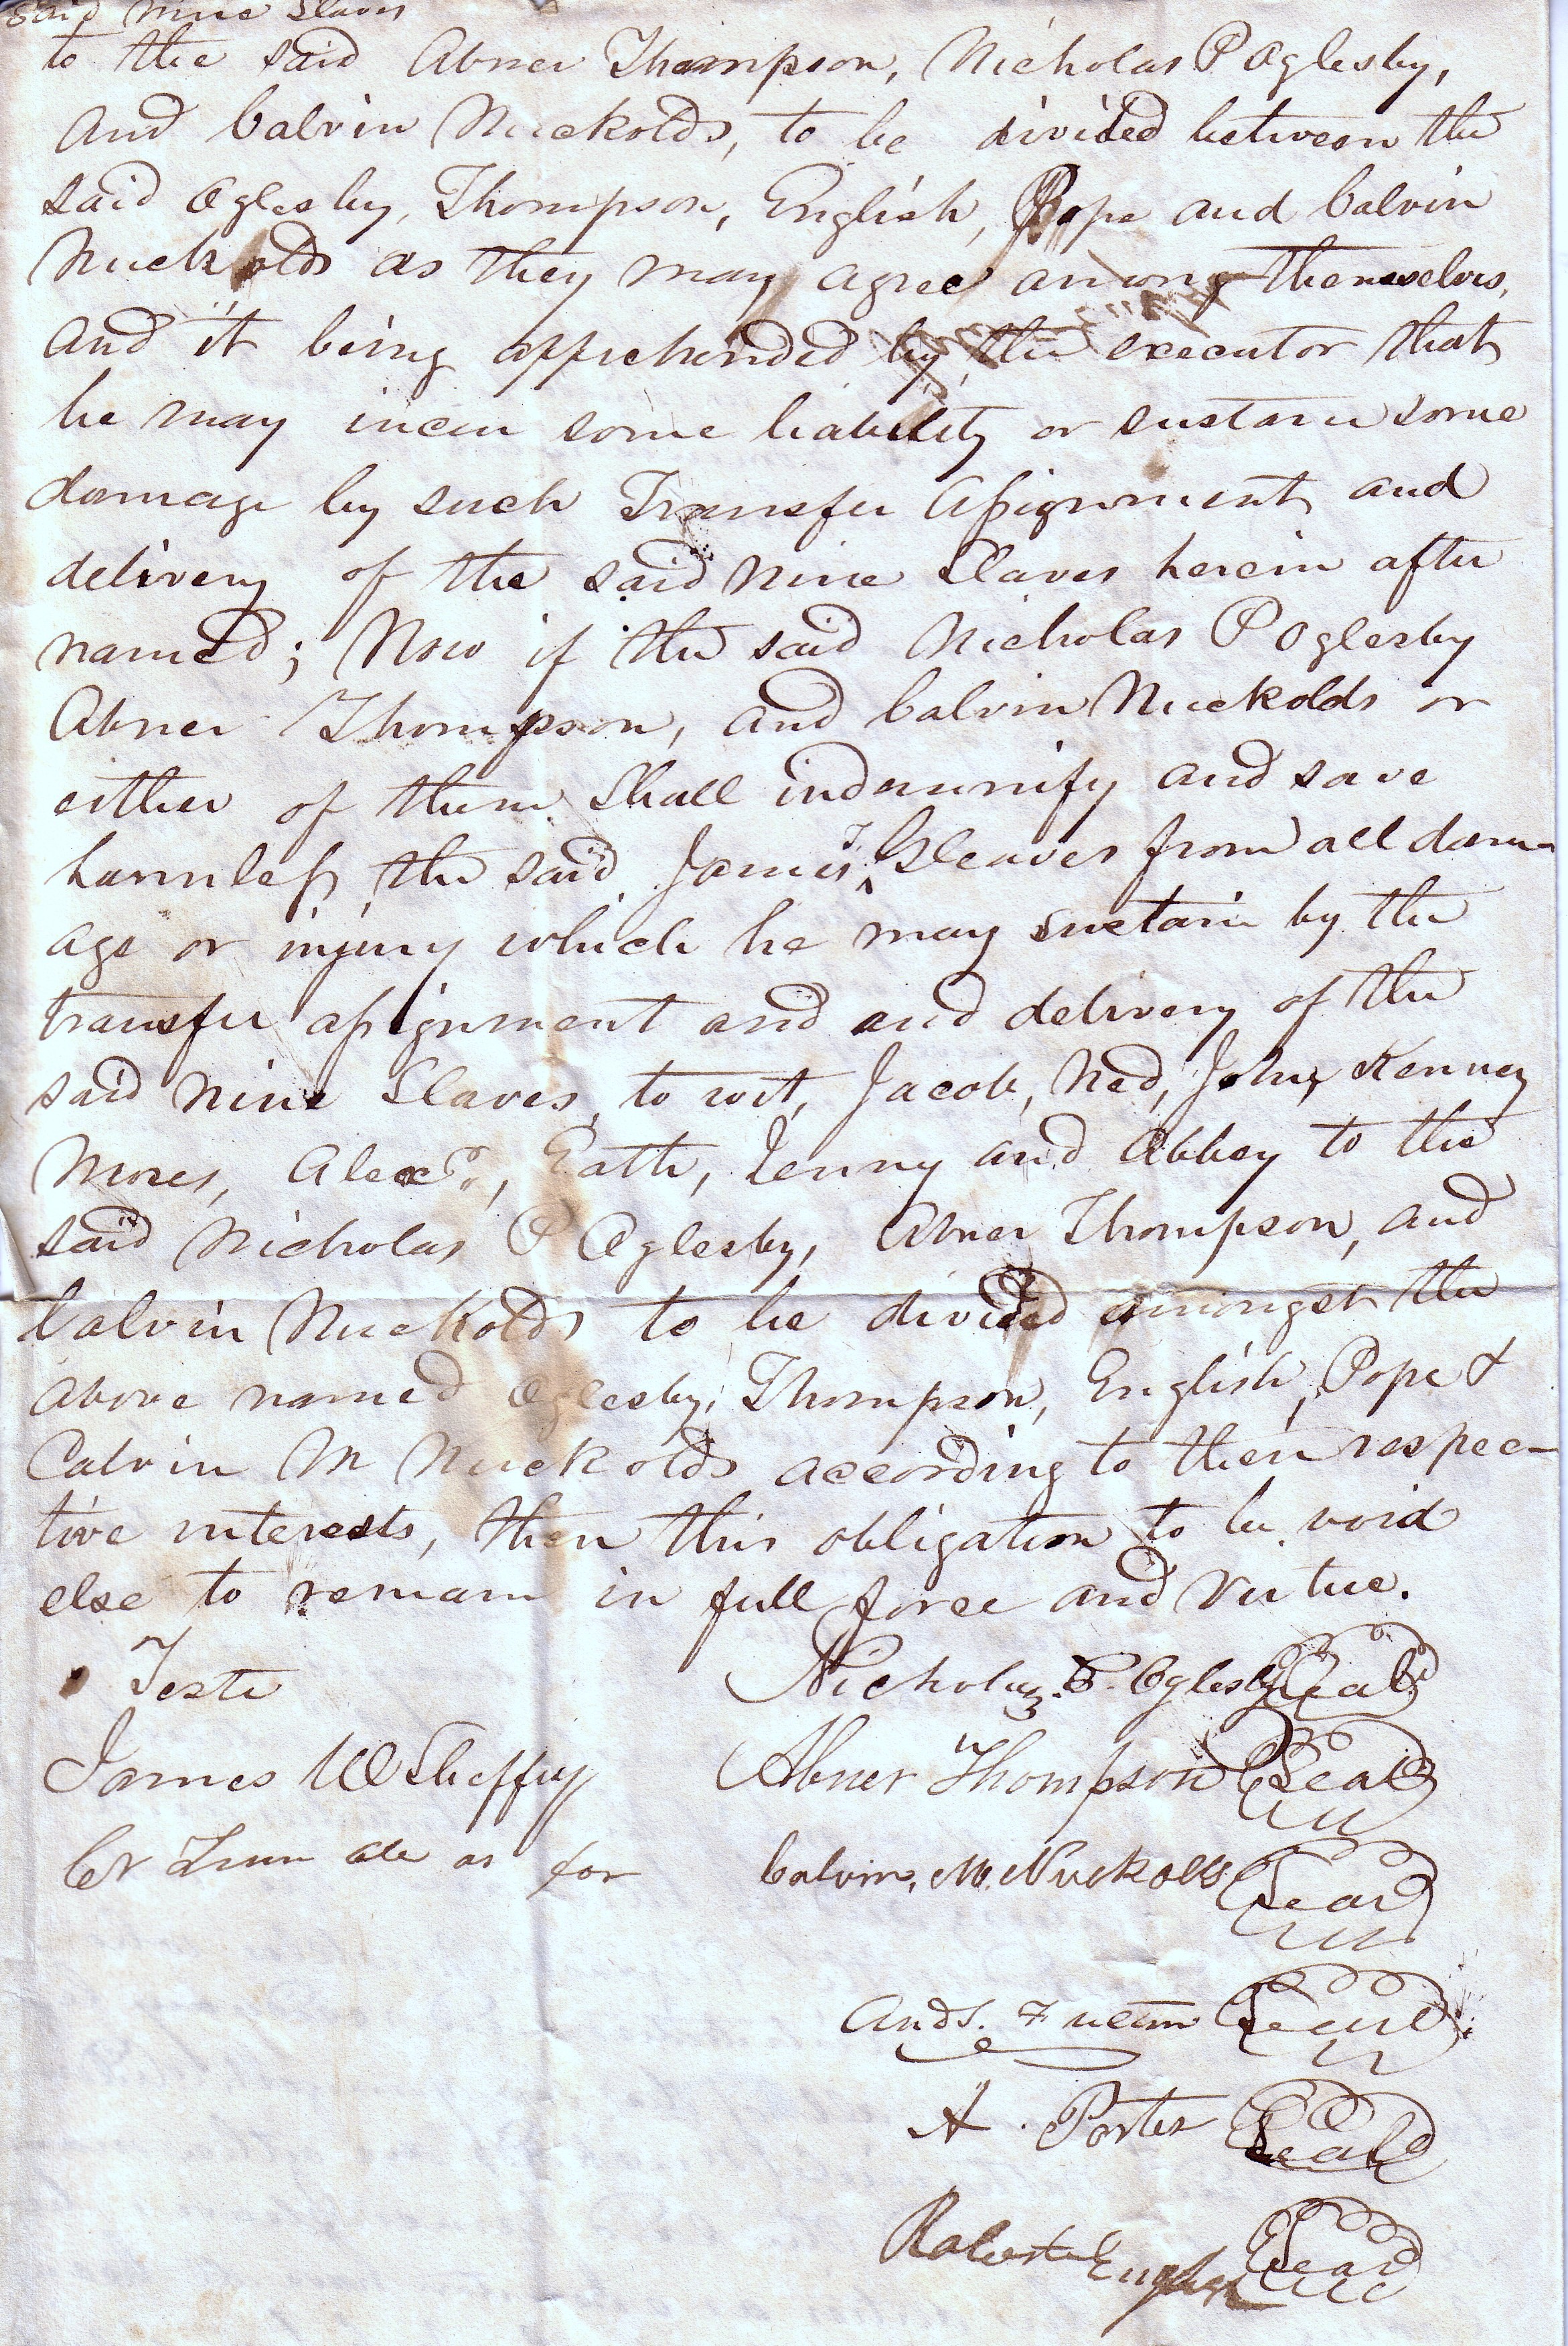 said nine Slaves
to the said Abner Thompson, Nicholas P Oglesby,
and Calvin Nuckolds, to be divided between the
said Oglesby, Thompson, English, Pope and Calvin
Nuckolds as they may agree among themselves,
and it being apprehended by the executor that
he may incur some liability or sustain some
damage by such Transfer Assignment and
delivery of the said nine Slaves herein after
named; Now if the said Nicholas P Oglesby
Abner Thompson, and Calvin Nuckolds or
either of them Shall indemnify and save
harmless the said James T Gleaves from all dam-
age or injury which he may sustain by the
transfer assignment and and delivery of the
said nine Slaves, to wit, Jacob, Ned, John, Kenney
Moses, Alexr., Eath, Jenny and Abbey to the
said Nicholas P Oglesby, Abner Thompson, and
Calvin Nuckolds to be divided amongst the
above named Oglesby, Thompson, English, Pope &
Calvin M Nuckolds according to their respec-
tive interests, then this obligation to be void
else to remain in full force and virtue.
Teste Nicholas P. Oglesby Seal
James W Sheffey Abner Thompson Seal
as for Calvin, M. Nuckolls Seal
Seal
A. Porter Seal
Robert English Seal